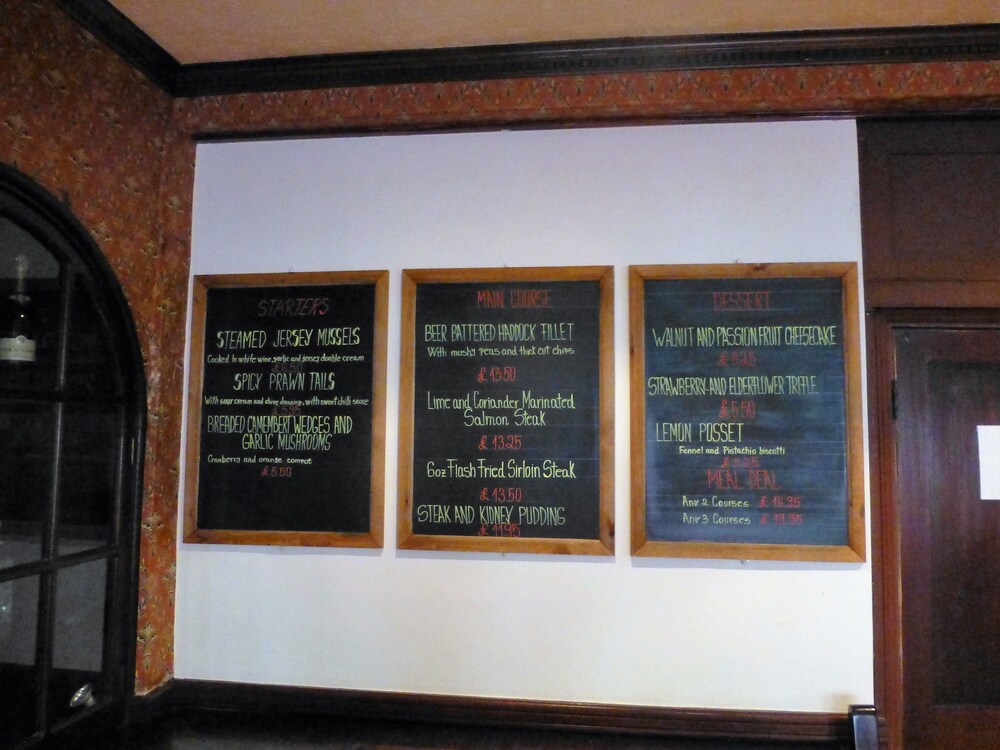 STARTERS
STEAMED JERSEY MUSSELS
Cooked in white wine, garlic and jersey double cream
SPICY PRAWN TAILS
With sour cream and chive dressing, with sweet chilli sauce
BREADED CAMEMBERT WEDGES AND
GARLIC MUSHROOMS
Cranberry and orange compot
£5.50
MAIN COURSE
BEER BATTERED HADDOCK FILLET
With mushy peas and thick cut chips
£13.50
Lime and Coriander Marinated
Salmon Steak
£13.25
6oz Flash Fried Sirloin Steak
£13.50
STEAK AND KIDNEY PUDDING
£11.95
DESSERT
WALNUT AND PASSION FRUIT CHEESECAKE
£5.25
STRAWBERRY AND ELDERFLOWER TRIFLE
£5.50
LEMON POSSET
Fennel and Pistachio biscotti
£5.25
MEAL DEAL
Any 2 Courses £16.95
Any 3 Courses £19.95